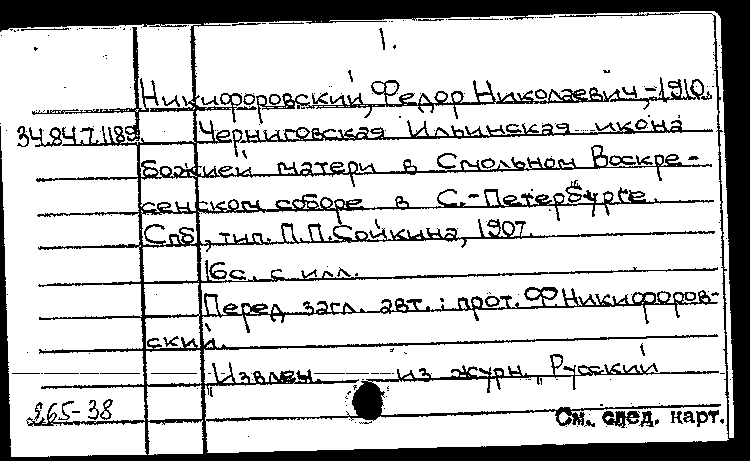 1.
Никифоровский, Федор Николаевич, -1910.
34.84.7.1189. Черниговская Ильинская икона
божией матери в Смольном Воскре-
сенском соборе в С.-Петербурге.
Спб., тип. П.П.Сойкина, 1907.
16с. с илл.
Перед загл. авт.: прот. Ф.Никифоров-
ский.
"Извлеч. из журн. "Русский
265-38
См. след. карт.